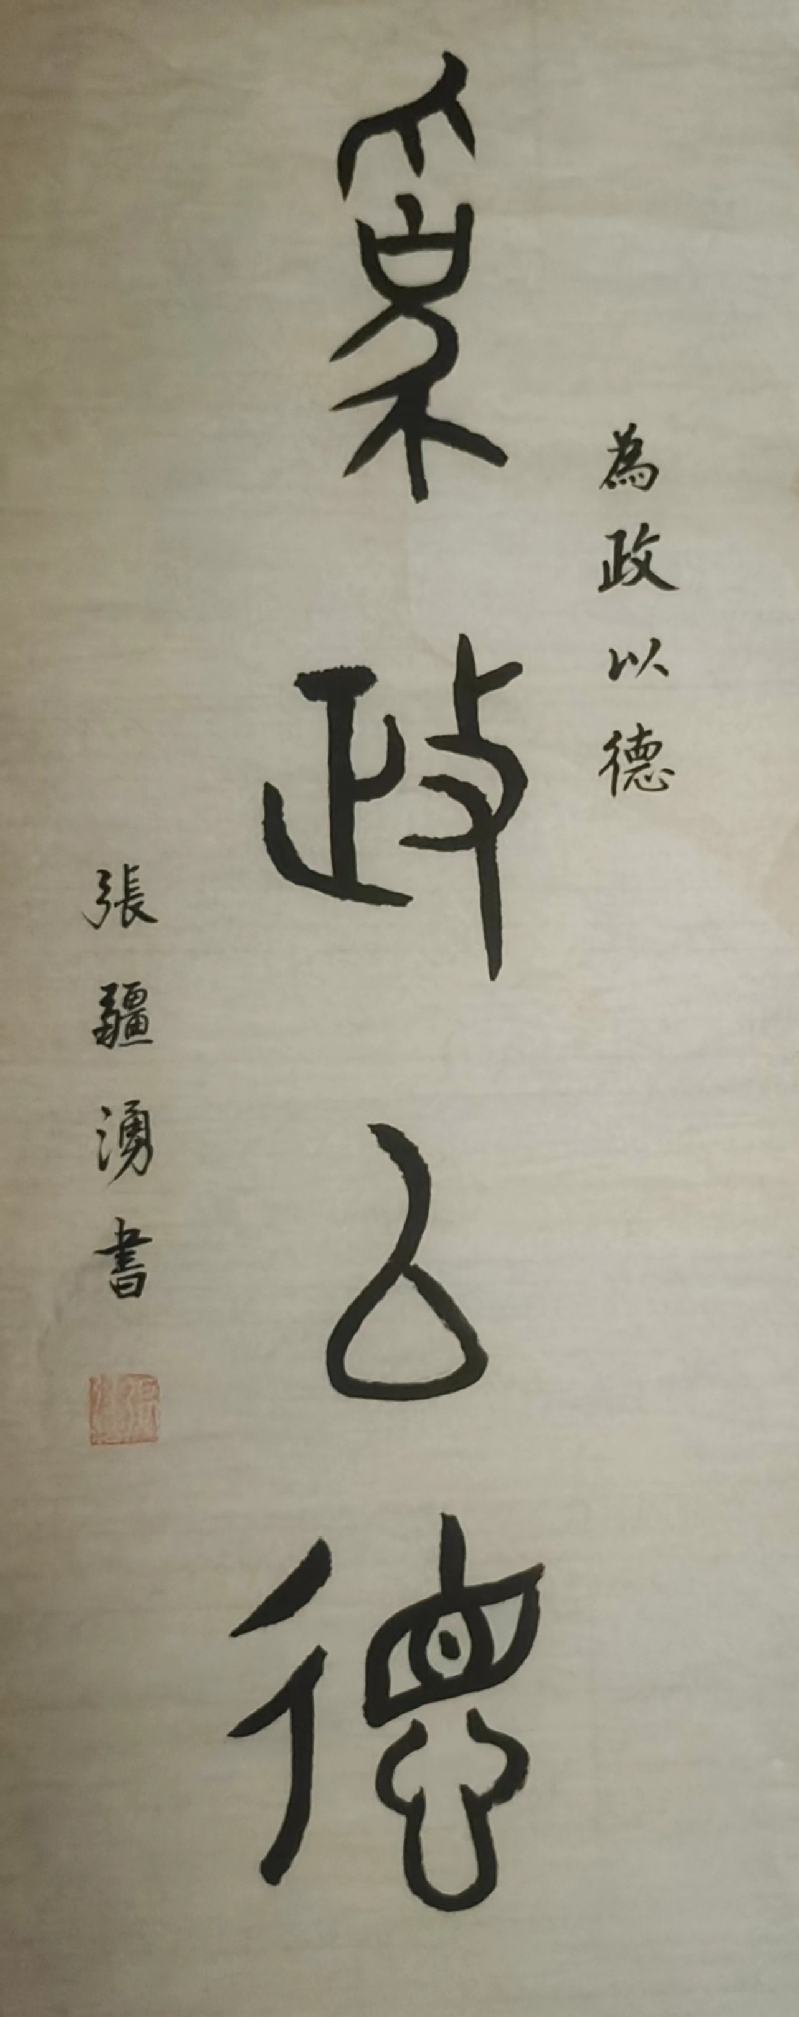 為政以德
為政以德
張疆湧書